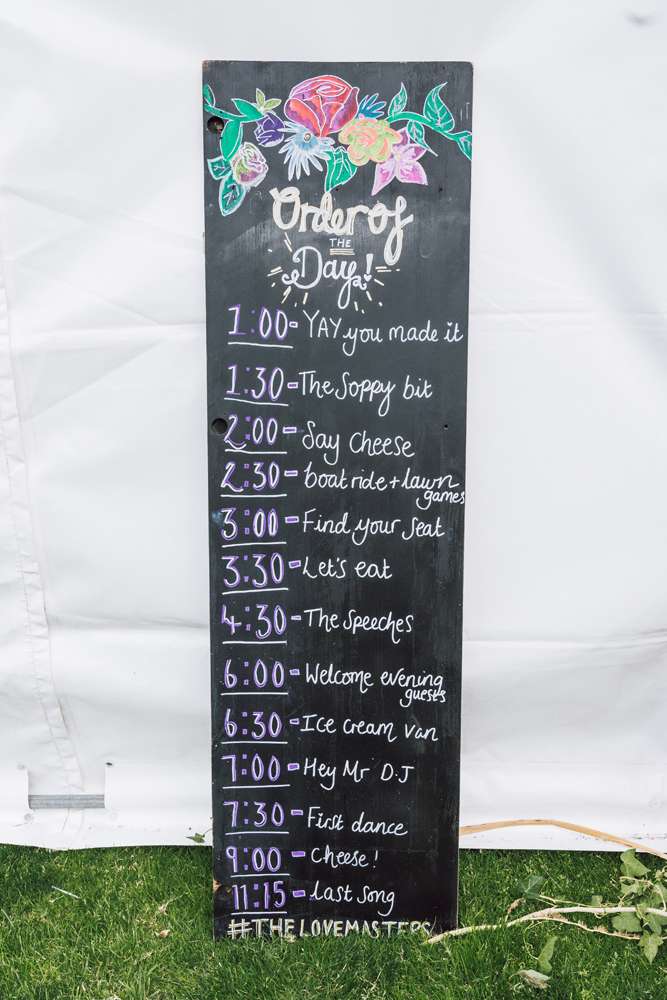 Order of
THE
Day!
1:00 - YAY you made it
1:30 - The Soppy bit
2:00 - Say cheese
2:30 - boat ride + lawn
games
3:00 - Find your seat
3:30 - Let's eat
4:30 - The Speeches
6:00 - Welcome evening
guests
6:30 - Ice cream van
7:00 - Hey Mr D.J
7:30 - First dance
9:00 - Cheese!
11:15 - last song
#THELOVEMASTERS